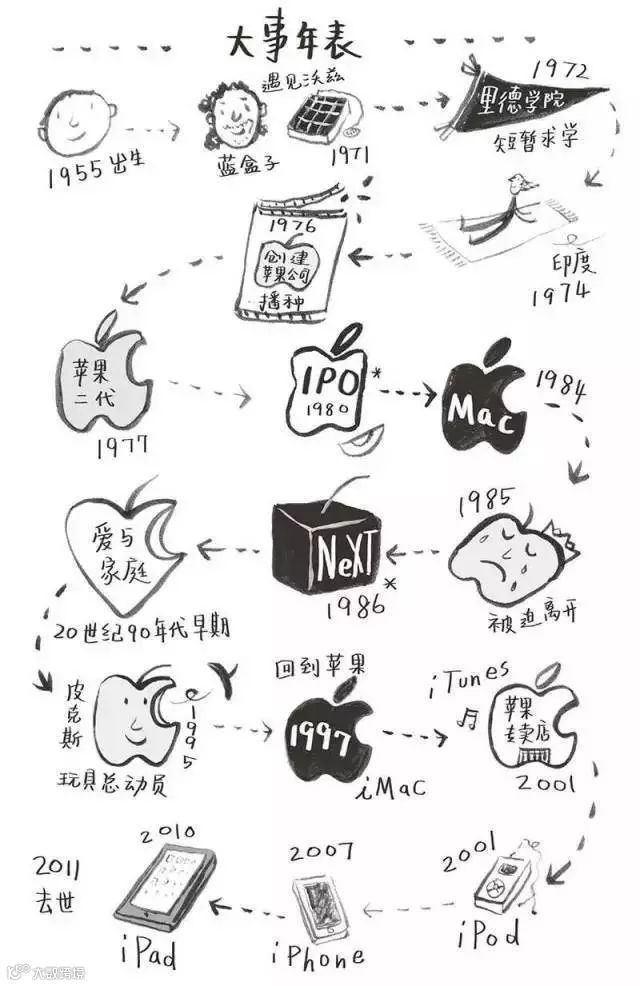 大事年表
1955出生
遇见沃兹
蓝盒子
1971
1972
里德学院
短暂求学
印度
1974
1976
创建
苹果公司
播种
苹果
二代
1977
IPO*
1980
Mac
1984
1985
被迫离开
NeXT
1986*
爱与
家庭
20世纪90年代早期
皮克斯
1995
玩具总动员
回到苹果
1997
iMac
iTunes
苹果
专卖店
2001
2001
iPod
2007
iPhone
2010
iPad
2011
去世
大数跨境